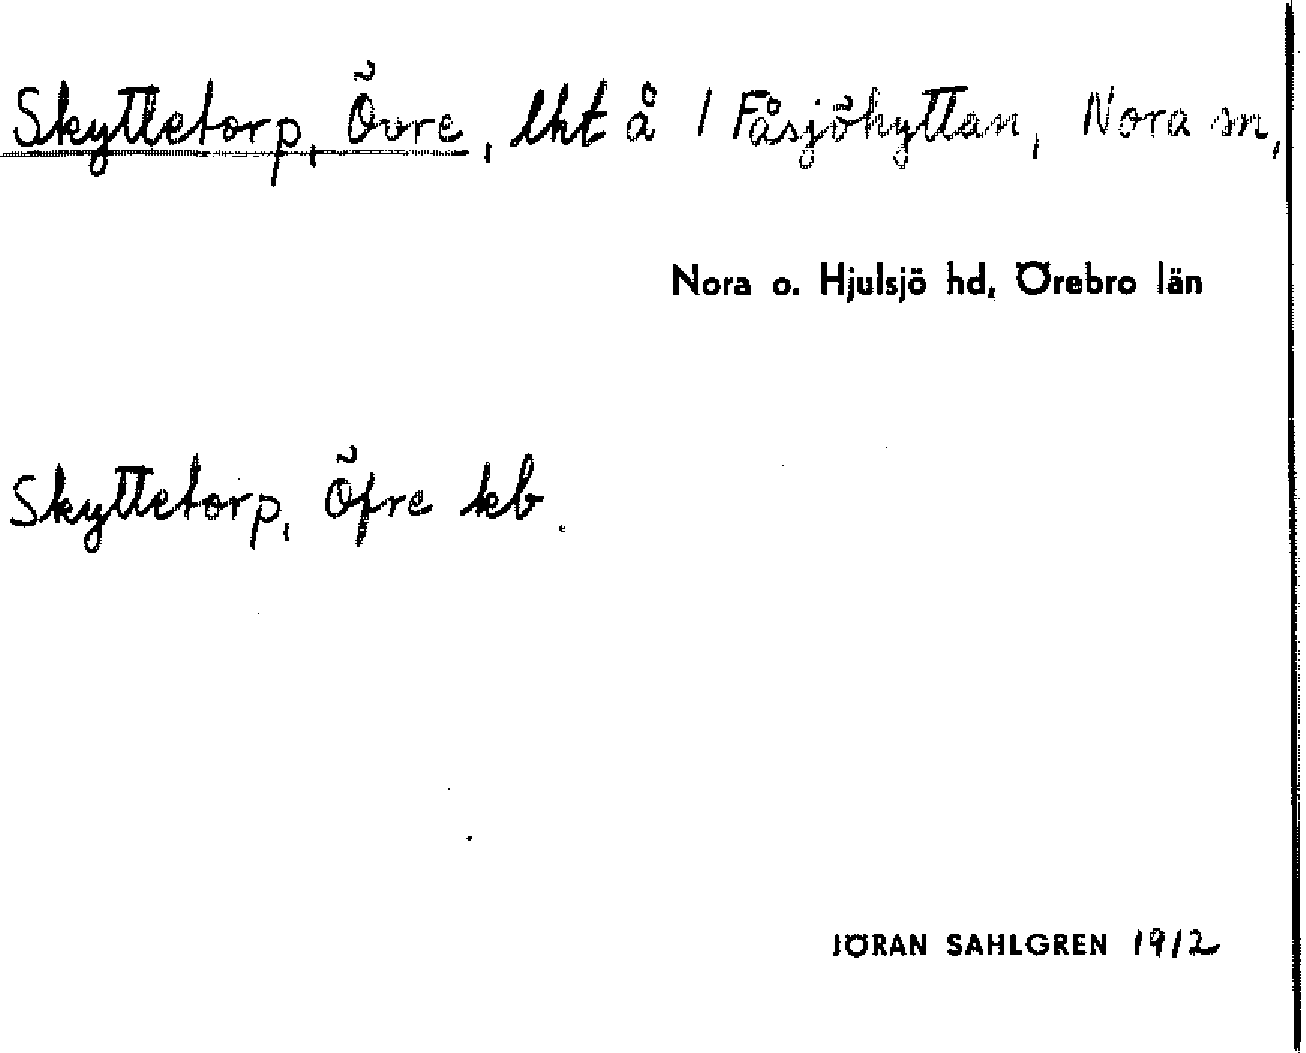 Skyttetorp, Övre, lht å 1 Fåsjöhyttan, Nora sn,
Nora o. Hjulsjö hd, Örebro län
Skyttetorp, Öfre kb.
JÖRAN SAHLGREN 1912